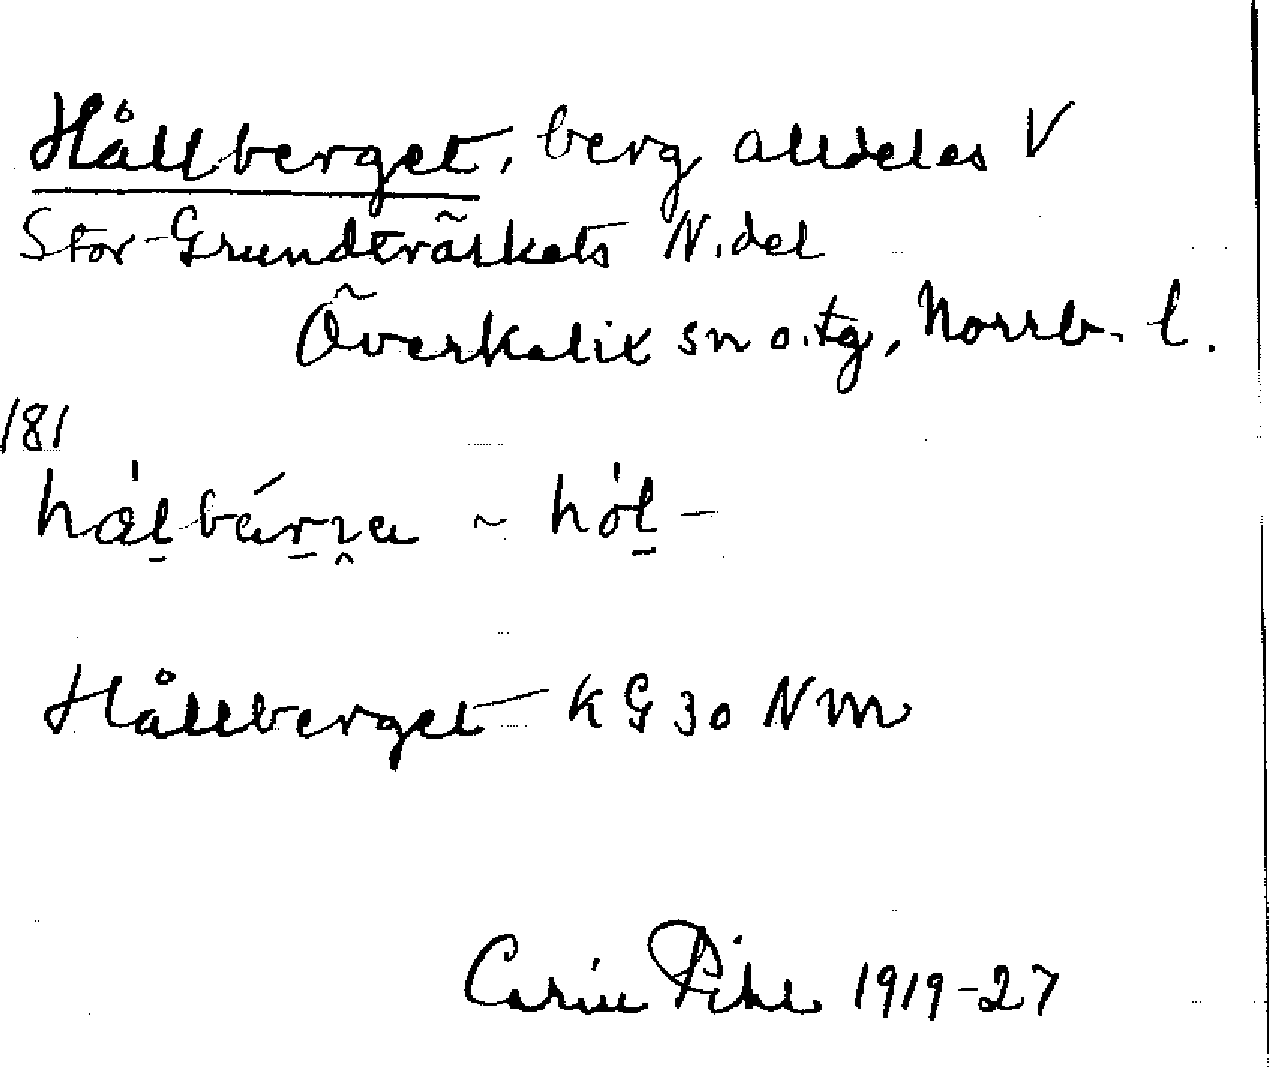 Hållberget, berg alldeles V
Stor-Grundträskets N. del
Överkalix sn o. tg, Norrb. l.
181
hålbárn̠a ~ hól̠-
Hållberget KG 30 NM
Carin Pihl 1919-27